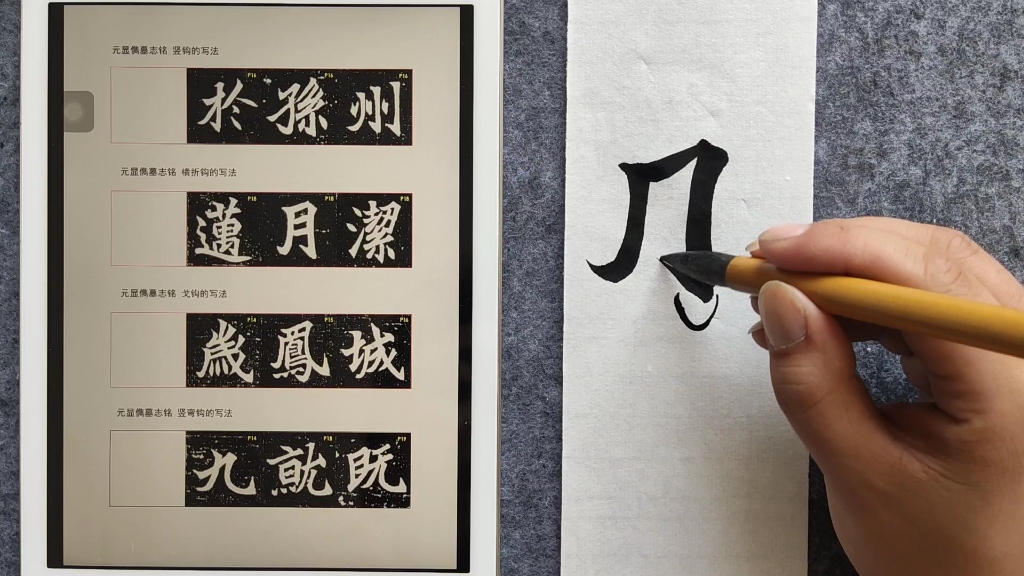 元显儁墓志铭 竖钩的写法
P16 P16 P16
於 孫 州
元显儁墓志铭 横折钩的写法
P18 P18 P18
邁 月 潔
元显儁墓志铭 戈钩的写法
P14 P15 P16
歲 鳳 城
元显儁墓志铭 竖弯钩的写法
P14 P18 P19
九 就 既